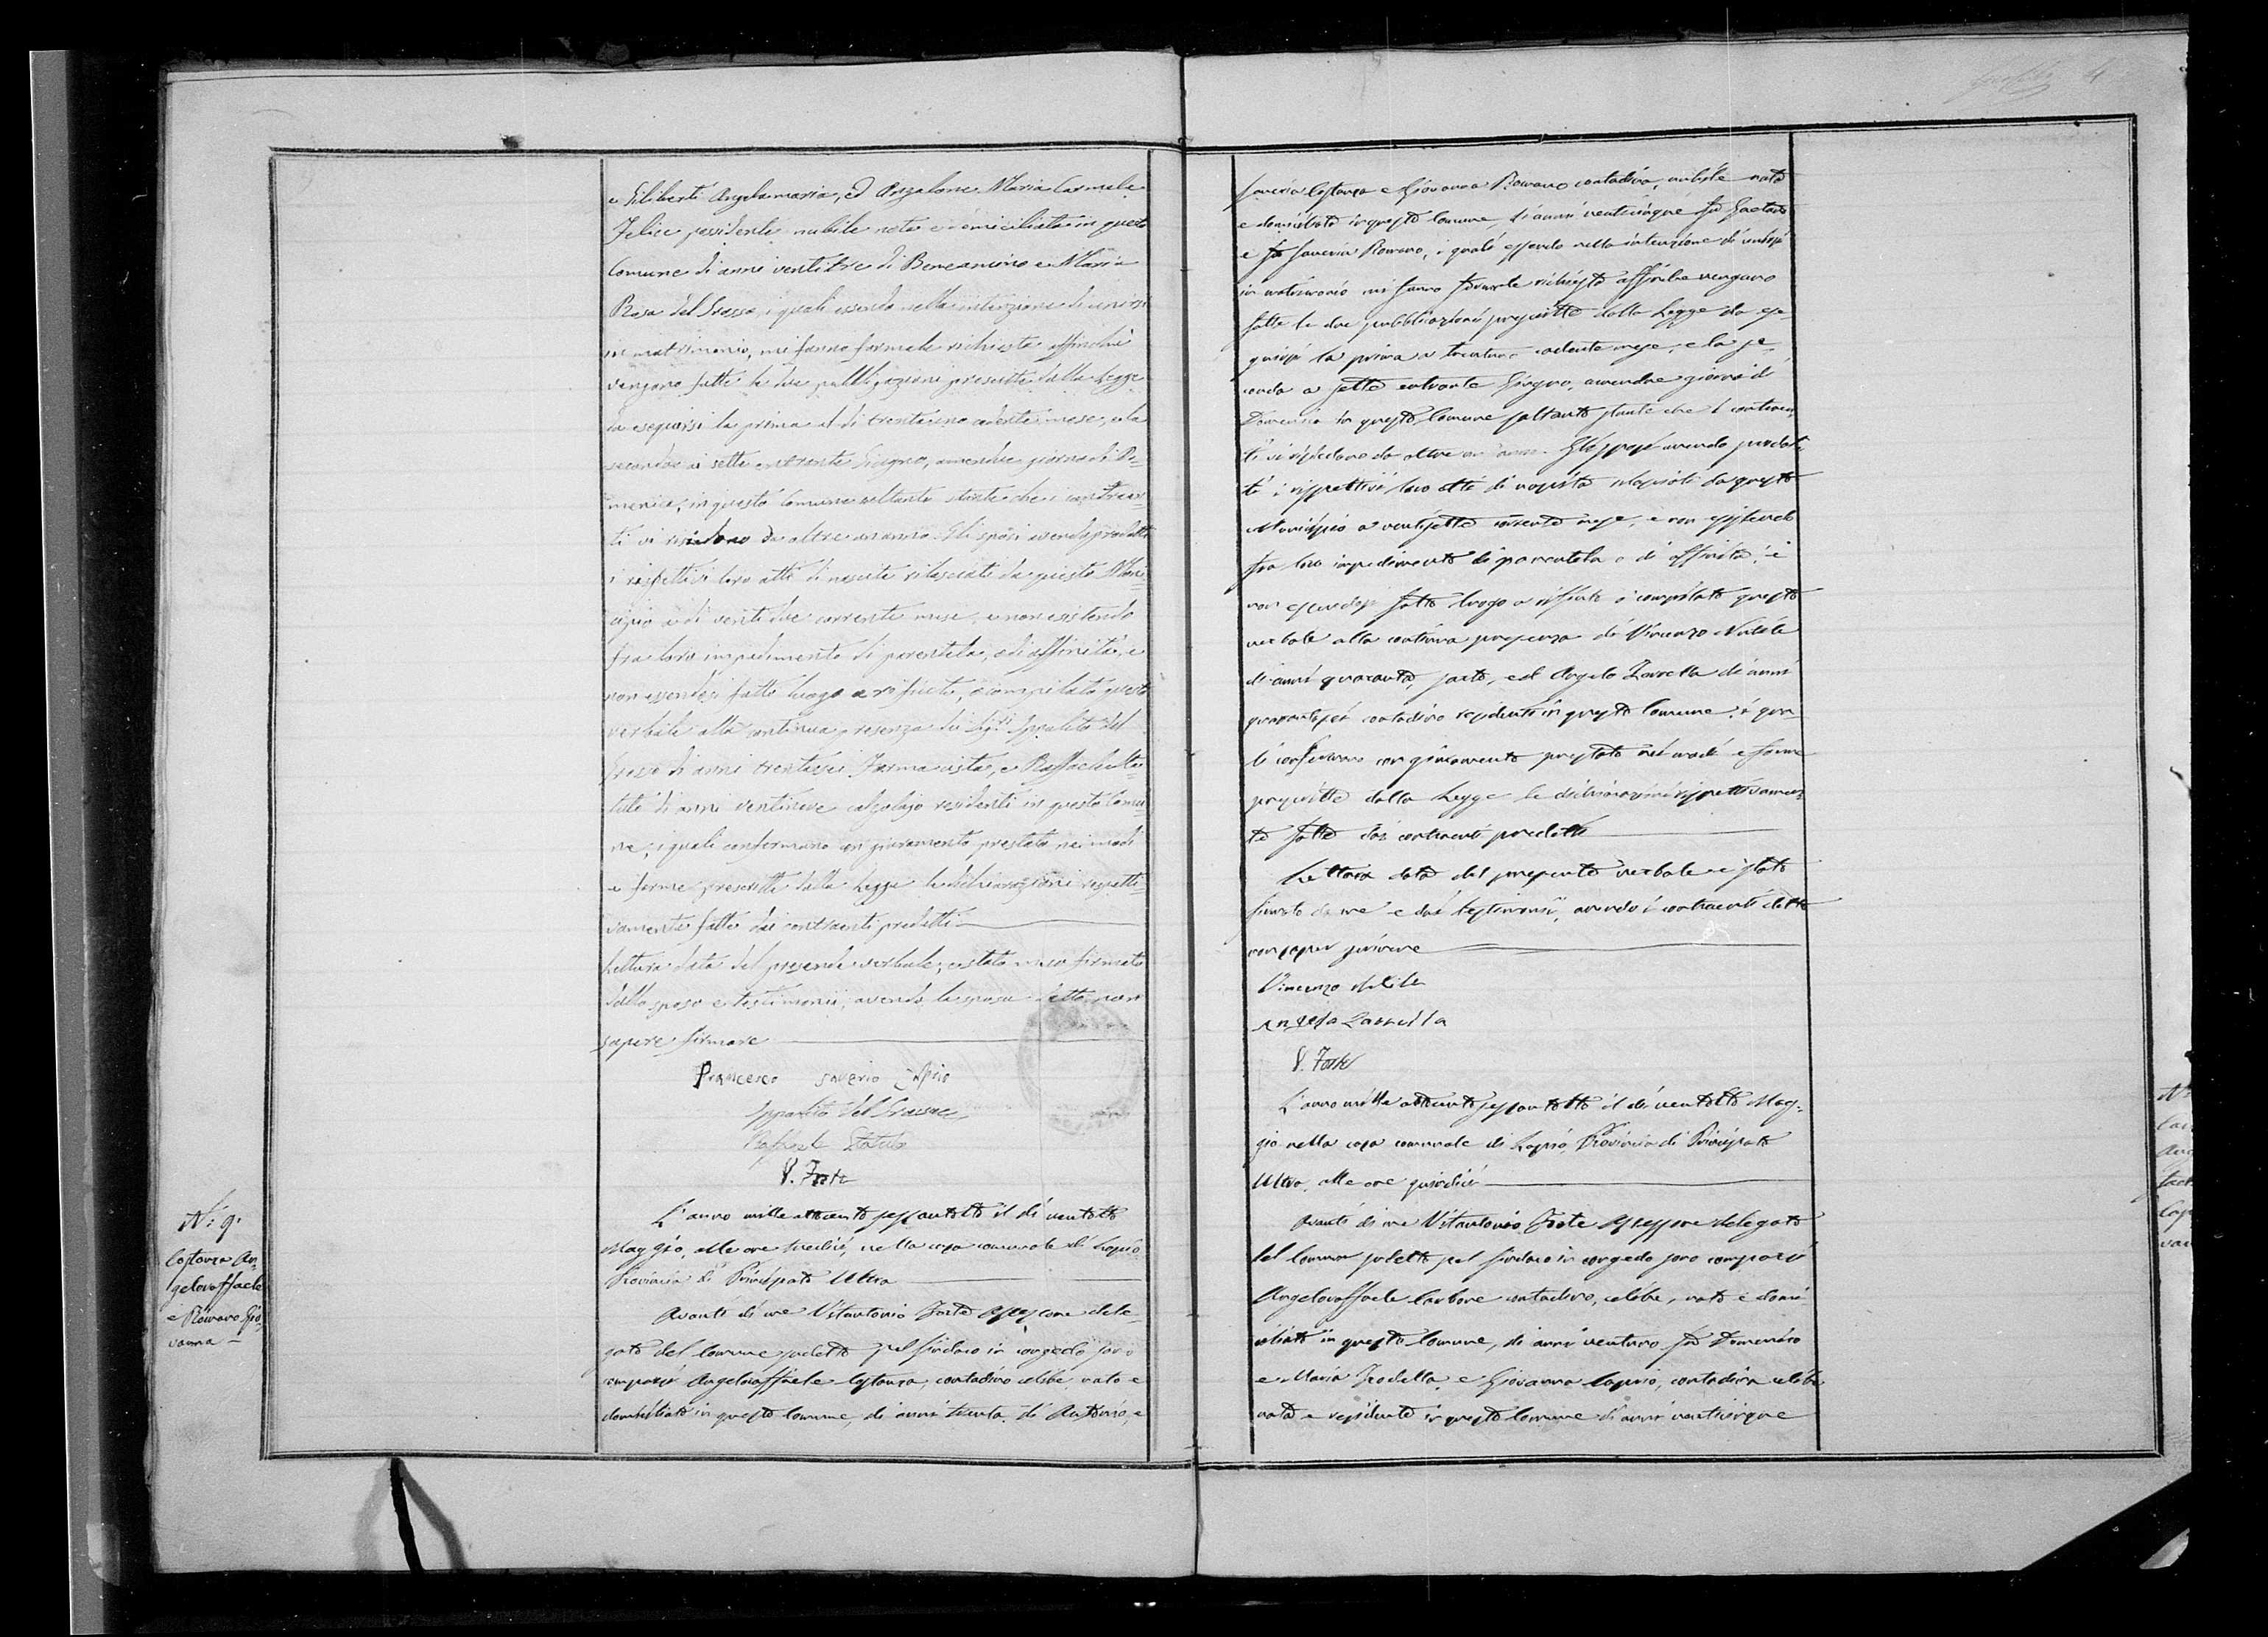 e Filiberti Angelamaria, ed Anzalone Maria Carmela
Felice possidente nubile nata e domiciliata in questo
Comune di anni ventitre di Beneamino e Maria
Rosa Del Grosso, i quali essendo nella intenzione di unirsi
in matrimonio, mi fanno formale richiesta affinchè
vengano fatte le due pubblicazioni prescritte dalla Legge
da eseguirsi la prima il dì trentuno cadente mese, e la
seconda ai sette entrante Giugno, amendue giorni di Do=
menica, in questo Comune soltanto stante che i contraen=
ti vi risiedono da oltre un anno. Gli sposi avendo prodotti
i rispettivi loro atti di nascita rilasciati da questo Muni=
cipio a dì venti due corrente mese, e non esistendo
fra loro impedimento di parentela, o di affinità, e
non essendosi fatto luogo a rifiuto, ò compilato questo
verbale alla continua presenza dei Sig.ri Ippolito Del
Grosso di anni trentasei Farmacista, e Raffaele Ta
tulo di anni ventinove calzolajo residenti in questo Comu
ne, i quali confermano con giuramento prestato nei modi
e forme prescritte dalla Legge le dichiarazioni rispetti=
vamente fatte dai contraenti predetti
Lettura data del presente verbale, è stato meco firmato
dallo sposo e testimonii, avendo la sposa detto non
sapere firmare
Francesco Saverio
Ippolito Del Grosso
Raffaele Tatulo
V. Forte
N.º 9.
Costanza An=
geloraffaele
e Romano Gio=
vanna
L'anno mille ottocento sessantotto il dì ventotto
Maggio, alle ore tredici, nella casa comunale di Lapio
Provincia di Principato Ultra
Avanti di me Vitantonio Forte Assessore dele=
gato del Comune sudetto pel Sindaco in congedo sono
comparsi Angeloraffaele Costanza, contadino celibe, nato e
domiciliato in questo Comune, di anni trenta di Antonio, e
4
Saveria Costanza e Giovanna Romano contadina, nubile nata
e domiciliata in questo Comune, di anni venticinque fu Gaetano
e fu Saveria Romano, i quali essendo nella intenzione di unirsi
in matrimonio mi fanno formale richiesta affinchè vengano
fatte le due pubblicazioni prescritte dalla Legge da ese=
guirsi la prima a trentuno cadente mese, e la se=
conda a sette entrante Giugno, amendue giorni di
Domenica in questo Comune soltanto stante che i contraen=
ti vi risiedono da oltre un anno. Gli sposi avendo prodot=
ti i rispettivi loro atti di nascita rilasciati da questo
Municipio a ventisette corrente mese, e non esistendo
fra loro impedimento di parentela o di affinità, e
non essendosi fatto luogo a rifiuto ò compilato questo
verbale alla continua presenza di Vincenzo Natile
di anni quaranta, sarto, ed Angelo Zarrella di anni
quarantasei contadino residenti in questo Comune, i qua=
li confermano con giuramento prestato nei modi e forme
prescritte dalla Legge le dichiarazioni rispettivamen=
te fatte dai contraenti predetti
Lettura data del presente verbale è stato
firmato da me e dai testimonii, avendo i contraenti detto
non saper scrivere
Vincenzo Natile
Angelo Zarrella
V. Forte
L'anno mille ottocento sessantotto il dì ventotto Mag=
gio nella casa comunale di Lapio, Provincia di Principato
Ultra, alle ore quindici
Avanti di me Vitantonio Forte Assessore delegato
del Comune sudetto pel Sindaco in congedo sono comparsi
Angeloraffaele Carbone contadino, celibe, nato e domi
ciliato in questo Comune, di anni ventuno fu Domenico
e Maria Trodella, e Giovanna Caprio, contadina celibe
nata e residente in questo Comune di anni venticinque